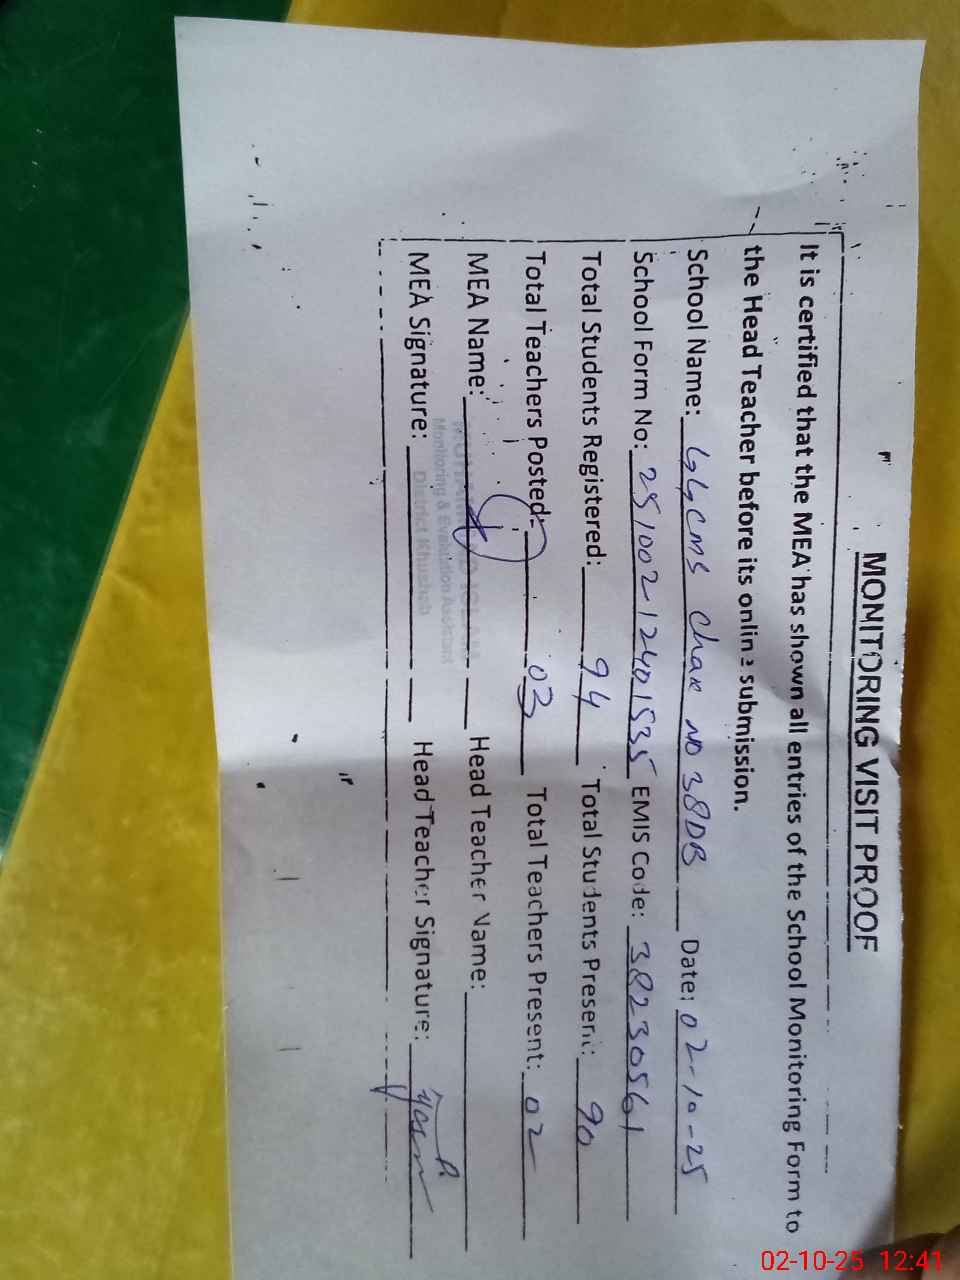 MONITORING VISIT PROOF
It is certified that the MEA has shown all entries of the School Monitoring Form to
the Head Teacher before its online submission.
School Name: GGCMS Chak NO 38DB Date: 02-10-25
School Form No: 25100212401535 EMIS Code: 38230561
Total Students Registered: 94 Total Students Present: 90
Total Teachers Posted: 03 Total Teachers Present: 02
MEA Name: Head Teacher Name:
Monitoring & Evaluation Assistant
District Khushab
MEA Signature: Head Teacher Signature:
02-10-25 12:41